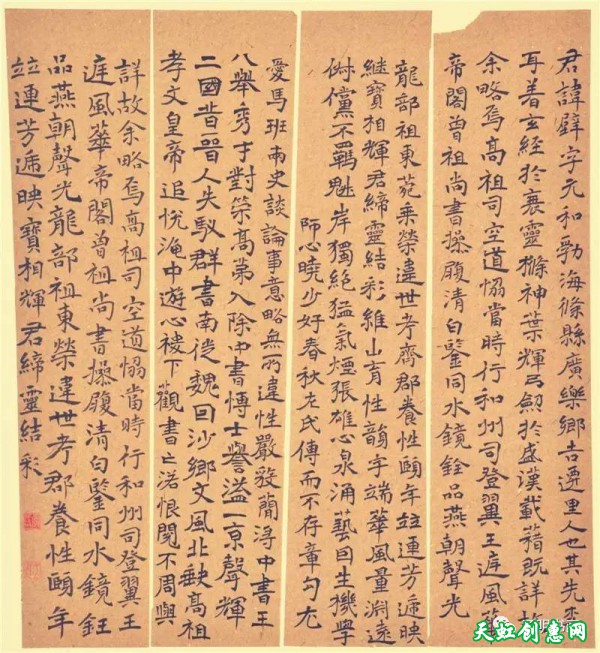 君諱璧字元和勃海條縣廣樂鄉吉遷里人也其先盖
耳著玄經於衰靈樤神葉輝弓劒於盛漢載藉既詳故
余略焉高祖司空道恊當時行和州司登翼王庭風
帝閣曾祖尚書操履清白鑒同水鏡銓品燕朝聲光
龍部祖東菀乘榮違世考齊郡養性頤年竝連芳遞映
繼寶相輝君締靈結彩維山育性韻宇端華風量淵遠
俶儻不羈魁岸獨絕猛氣煙張雄心泉涌藝因生機學
師心曉少好春秋左氏傳而不存章句尤
愛馬班兩史談論事意略無所違性嚴毅簡潯中書王
八舉秀才對策高第入除中書博士譽溢一京聲輝
二國昔晉人失馭群書南徙魏因沙鄉文風北缺高祖
孝文皇帝追悅淹中遊心稷下觀書亡落恨閱不周與
詳故余略焉高祖司空道恊當時行和州司登翼王
庭風華帝閣曾祖尚書操履清白鑒同水鏡鈺
品燕朝聲光龍部祖東榮違世考郡養性頤年
竝連芳遞映寶相輝君締靈結彩
天虹创意网